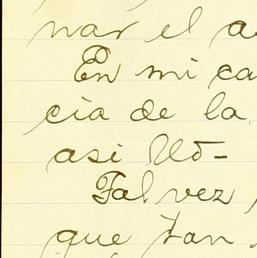 nar el a
En mi ca
cia de la
asi Ud-
Tal vez
que tan